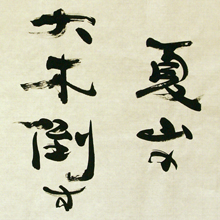 夏山の
大木倒す